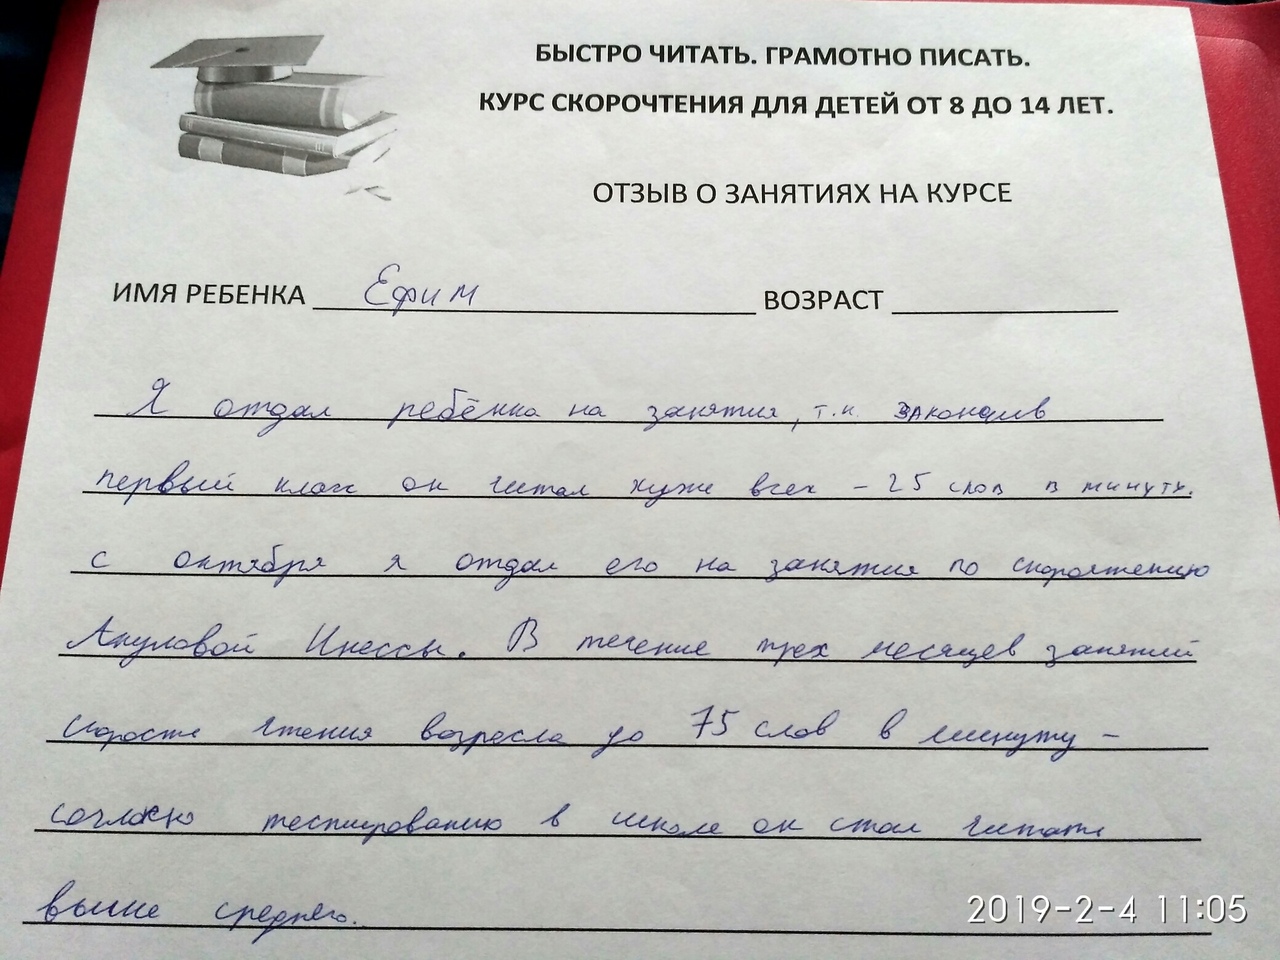 БЫСТРО ЧИТАТЬ. ГРАМОТНО ПИСАТЬ.
КУРС СКОРОЧТЕНИЯ ДЛЯ ДЕТЕЙ ОТ 8 ДО 14 ЛЕТ.
ОТЗЫВ О ЗАНЯТИЯХ НА КУРСЕ
ИМЯ РЕБЕНКА Ефим ВОЗРАСТ
Я отдал ребёнка на занятия, т.к. закончив
первый класс он читал хуже всех - 25 слов в минуту.
С октября я отдал его на занятия по скорочтению
Акуловой Инессы. В течение трех месяцев занятий
скорость чтения возросла до 75 слов в минуту -
согласно тестированию в школе он стал читать
выше среднего.
2019-2-4 11:05